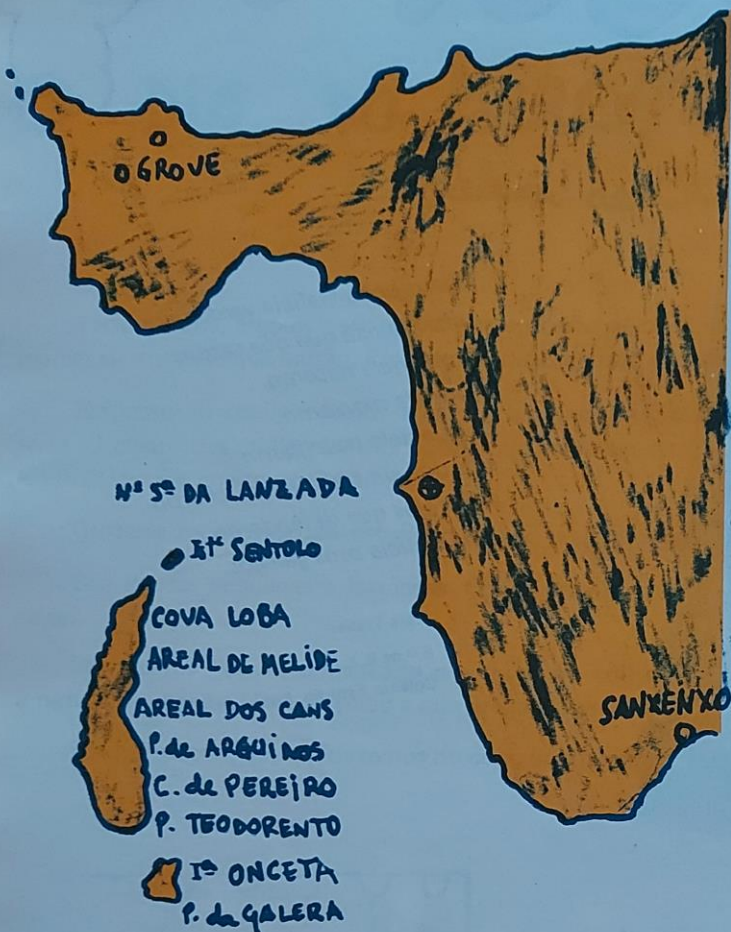 O GROVE
Nª Sª DA LANZADA
Itᵉ SENTOLO
COVA LOBA
AREAL DE MELIDE
AREAL DOS CANS
P. de ARGUIROS
C. de PEREIRO
P. TEODORENTO
SANXENXO
Iª ONCETA
P. da GALERA